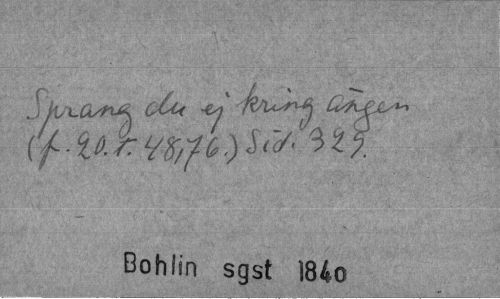 Sprang du ej kring ängen
(f. 20. t. 48,76.) Sid. 329.
Bohlin sgst 1840